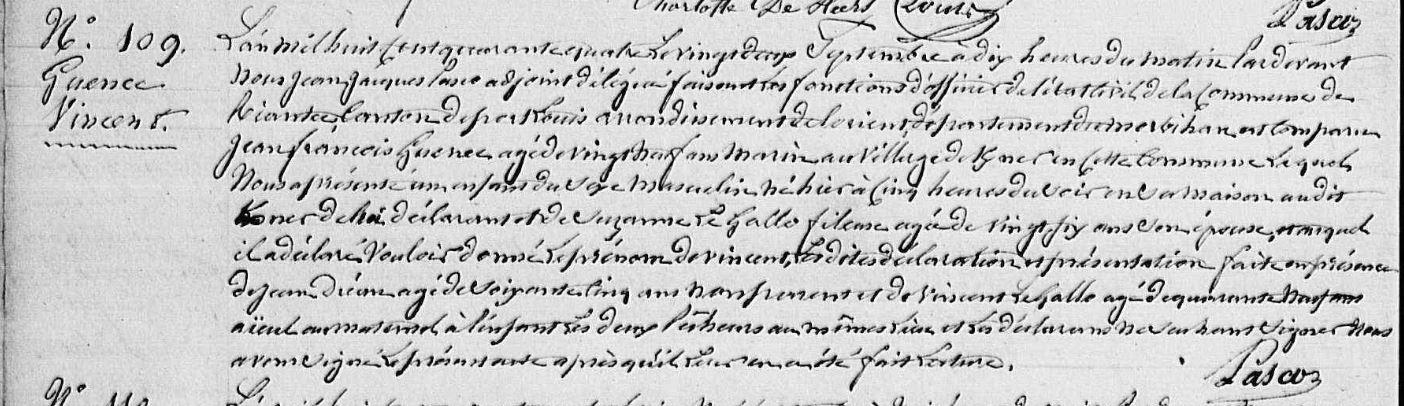 Charlotte De Heers Louis
Pasco
N.° 109.
Guenec
Vincent.
L'an mil huit cent quarante quatre le vingt deux Septembre à dix heures du matin Pardevant
Nous Jean Jacques Pasco adjoint délégué faisant les fonctions d'officier de l'état Civil de la Commune de
Riantec Canton de port Louis arrondissement de lorient, département du morbihan est Comparu
Jean françois Guenec agé de vingt neuf ans Marin au village de Kner en Cette Commune Lequel
Nous a présenté un enfant du sexe masculin né hier à Cinq heures du soir en sa maison au dit
Kner de lui déclarant et de Suzanne Le Gallo fileuse agée de vingt six ans son épouse, et auquel
il a déclaré Vouloir donné le prénom de vincent, Les dites déclaration et présentation fait en présence
de Jean Dréan agé de Soixante Cinq ans non parent et de vincent Le Gallo agé de quarante neuf ans
aïeul au maternel à l'enfant Les deux Pêcheurs au mêmes Lieu et Les déclarans ne sachant signer Nous
avons signé le présent acte après qu'il leur en a été fait Lecture.
Pasco
N.° 110